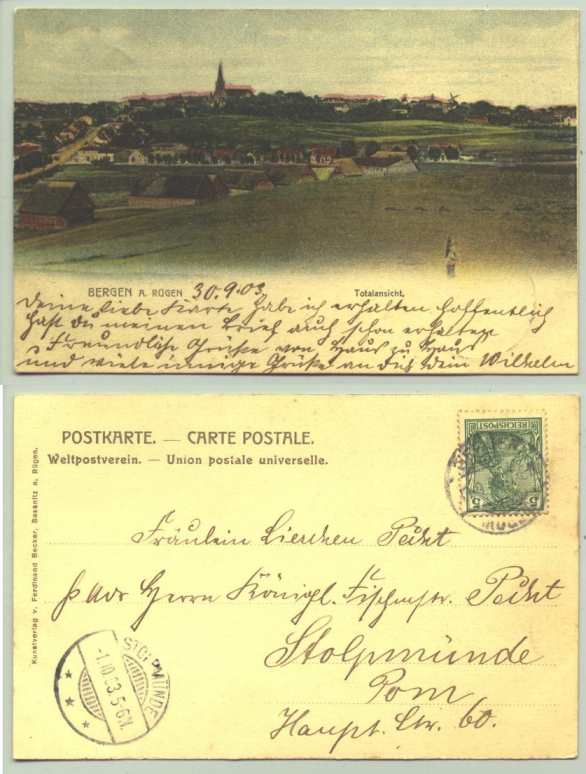 BERGEN A. RÜGEN 30.9.03. Totalansicht.
Deine liebe Karte habe ich erhalten hoffentlich
hast du meinen Brief auch schon erhalten
Freundliche Grüße von Haus zu Haus
und viele innige Grüße an dich dein Wilhelm
POSTKARTE. — CARTE POSTALE.
Weltpostverein. — Union postale universelle.
REICHSPOST
5 5
Kunstverlag v. Ferdinand Becker, Sassnitz a. Rügen.
Fräulein Lieschen Pecht
Herrn Königl. Fischmstr. Pecht
Stolpmünde
Pom
Haupt. Str. 60.
STOLPMÜNDE
-1.10.03.5-6N.